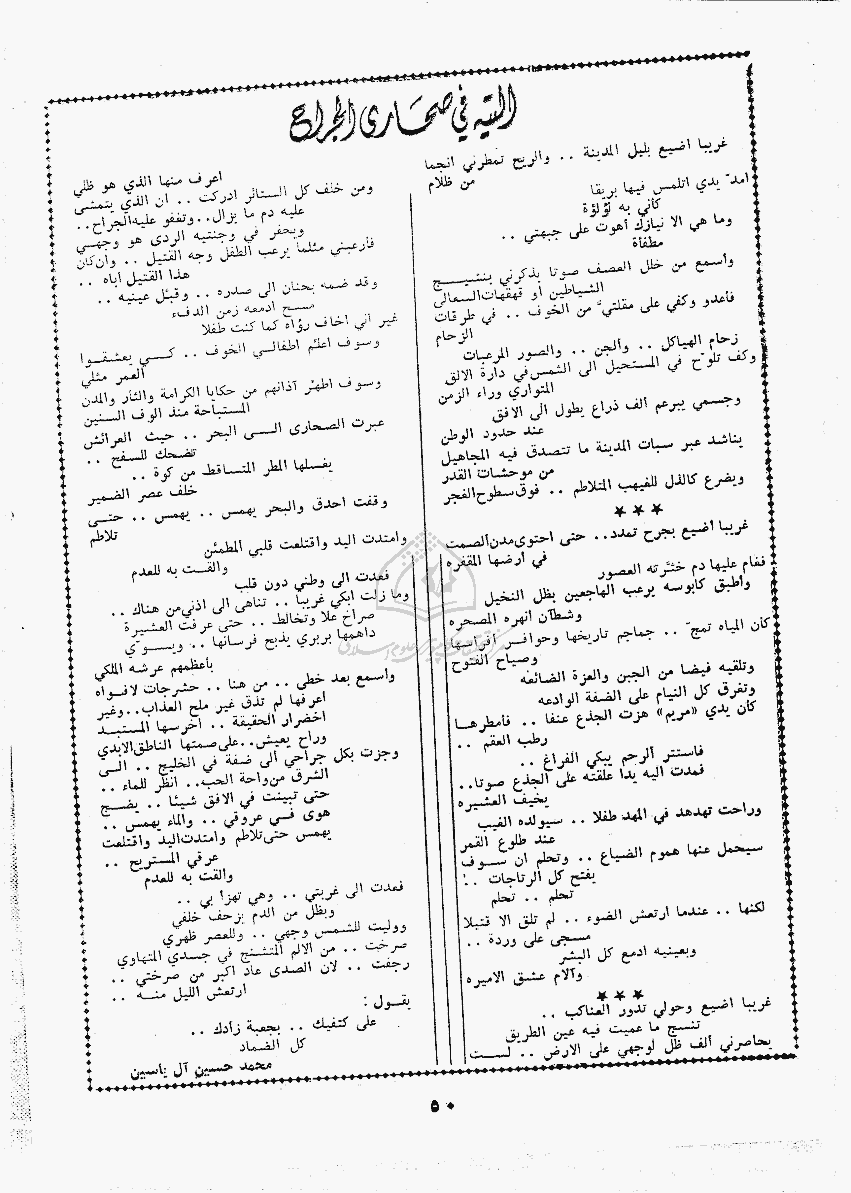 التيه في صحارى الجراح
غريبا اضيع بليل المدينة .. والريح تمطرني انجما
من ظلام
امد يدي اتلمس فيها بريقا
كأني به لؤلؤة
وما هي الا نيازك أهوت على جبهتي ..
مطفأة
وأسمع من خلل العصف صوتا يذكرني بنشيج
الشياطين أو قهقهات السعالى
فأعدو وكفي على مقلتيّ من الخوف .. في طرقات
الزحام
زحام الهياكل .. والجن .. والصور المرعبات
وكف تلوّح في المستحيل الى الشمس في دارة الالق
المتواري وراء الزمن
وجسمي يبرعم ألف ذراع يطول الى الافق
عند حدود الوطن
يناشد عبر سبات المدينة ما تتصدق فيه المجاهيل
من موحشات القدر
ويضرع كالذل للغيهب المتلاطم .. فوق سطوح الفجر
★ ★ ★
غريبا اضيع بجرح تمدد .. حتى احتوى مدن الصمت
في ارضها المقفره
فغام عليها دم خثّرته العصور
وأطبق كابوسه يرعب الهاجعين بظل النخيل
وشطآن انهره المصحره
كأن المياه تمجّ .. جماجم تاريخها وحوافر أفراسها
وصياح الفتوح
وتلقيه فيضا من الجبن والعزة الضائعه
وتغرق كل النيام على الضفة الوادعه
كأن يدي «مريم» هزت الجذع عنفا .. فامطرها
رطب العقم ..
فاستتر الرحم يبكي الفراغ ..
فمدت اليه يدا علقته على الجذع صوتا ..
يخيف العشيره
وراحت تهدهد في المهد طفلا .. سيولده الغيب
عند طلوع القمر
سيحمل عنها هموم الضياع .. وتحلم ان سوف
يفتح كل الرتاجات ..!
تحلم .. تحلم
لكنها .. عندما ارتعش الضوء .. لم تلق الا قتيلا
مسجى على وردة ..
وبعينيه ادمع كل البشر
وآلام عشق الاميره
★ ★ ★
غريبا اضيع وحولي تدور العناكب ..
تنسج ما عميت فيه عين الطريق
يحاصرني ألف ظل لوجهي على الارض .. لست
اعرف منها الذي هو ظلي
ومن خلف كل الستائر ادركت .. ان الذي يتمشى
عليه دم ما يزال .. وتغفو عليه الجراح ..
ويحفر في وجنتيه الردى هو وجهي
فأرعبني مثلما يرعب الطفل وجه القتيل .. وان كان
هذا القتيل اباه ..
وقد ضمه بحنان الى صدره .. وقبّل عينيه ..
مسح ادمعه زمن الدفء
غير اني اخاف رؤاه كما كنت طفلا
وسوف اعلّم اطفالي الخوف .. كي يعشقوا
العمر مثلي
وسوف اطهّر آذانهم من حكايا الكرامة والثأر والمدن
المستباحة منذ الوف السنين
عبرت الصحارى الى البحر .. حيث العرائش
تضحك للسفح ..
يغسلها المطر المتساقط من كوة ..
خلف عصر الضمير
وقفت احدق والبحر يهمس .. يهمس .. حتى
تلاطم
وامتدت اليد واقتلعت قلبي المطمئن
والقت به للعدم
فعدت الى وطني دون قلب
وما زلت ابكي غريبا .. تناهى الى اذني من هناك ..
صراخ علا وتخالط .. حتى عرفت العشيرة
داهمها بربري يذبح فرسانها .. ويسوّي
بأعظمهم عرشه الملكي
واسمع بعد خطى .. من هنا .. حشرجات لافواه
اعرفها لم تذق غير ملح العذاب .. وغير
اخضرار الحقيقة .. اخرسها المستبد
وراح يعيش .. على صمتها الناطق الابدي
وجزت بكل جراحي الى ضفة في الخليج .. الى
الشرق من واحة الحب .. انظر للماء ..
حتى تبينت في الافق شيئا .. يضج
هوى في عروقي .. والماء يهمس ..
يهمس حتى تلاطم وامتدت اليد واقتلعت
عرقي المستريح ..
والقت به للعدم
فعدت الى غربتي .. وهي تهزأ بي ..
وبظل من الدم يزحف خلفي
ووليت للشمس وجهي .. وللعصر ظهري
صرخت .. من الالم المتشنج في جسدي المتهاوي
رجفت .. لان الصدى عاد اكبر من صرختي ..
ارتعش الليل منه ..
يقول :
على كتفيك .. بجعبة زادك ..
كل الضماد
محمد حسين آل ياسين
٥٠